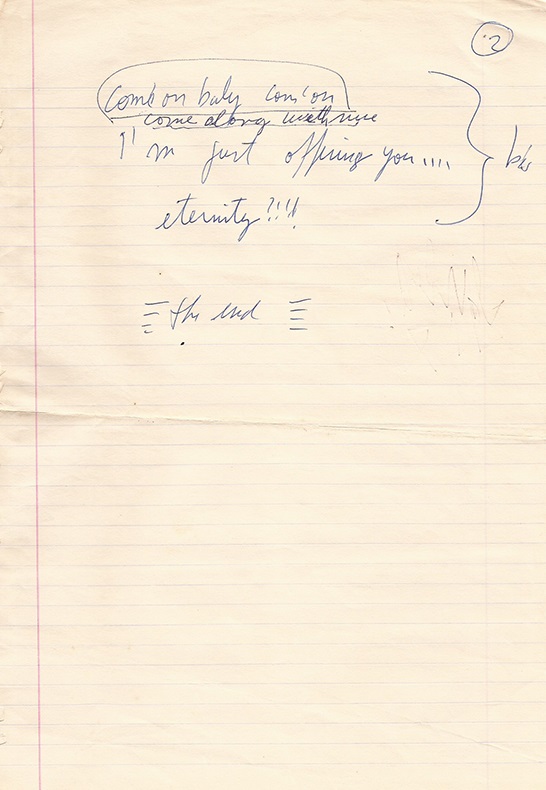 2
Com'on baby com'on
come along with me
I'm just offering you....
eternity?!!!
bis
the end